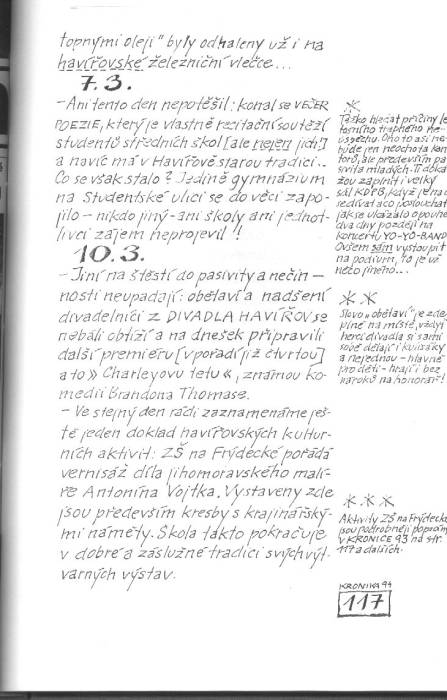 topnými oleji" byly odhaleny už i na
havířovské železniční vlečce...
7.3.
-Ani tento den nepotěšil: konal se VEČER
POEZIE, který je vlastně recitační soutěží
studentů středních škol [ale nejen jich]
a navíc má v Havířově starou tradici..
Co se však stalo? Jedině gymnázium
na Studentské ulici se do věci zapo-
jilo - nikdo jiný - ani školy ani jednot-
livci zájem neprojevil!!
10.3.
-Jiní na štěstí do pasivity a nečin-
nosti neupadají: obětaví a nadšení
divadelníci z DIVADLA HAVÍŘOV se
nebáli obtíží a na dnešek připravili
další premiéru [v pořadí již čtvrtou]
a to » Charleyovu tetu «, známou ko-
medii Brandona Thomase.
- Ve stejný den rádi zaznamenáme ješ-
tě jeden doklad havířovských kultur-
ních aktivit: ZŠ na Frýdecké pořádá
vernisáž díla jihomoravského malí-
ře Antonína Vojtka. Vystaveny zde
jsou především kresby s krajinářský-
mi náměty. Škola takto pokračuje
v dobré a záslužné tradici svých výt-
varných výstav.
*
Těžko hledat příčiny le-
tošního trapného ne-
úspěchu. Oho to asi ne-
bude jen neochota kan-
torů, ale především pa-
sivita mladých. Ti doká-
žou zaplnit i velký
sál KDPB, když je na co
se dívat a co poslouchat
jak se ukázalo o pouhé
dva dny později na
koncertu YO-YO BAND
Ovšem sám vystoupit
na podium, to je už
něco jiného...
**
Slovo „obětaví" je zde
plně na místě, vždyť
herci divadla si sami
sobě dělají i kulisáky
a nejednou - hlavně
pro děti - hrají i bez
nároků na honorář!
***
Aktivity ZŠ na Frýdecké
jsou podrobněji popsány
v KRONICE 93 na str.
117 a dalších.
KRONIKA 94
117